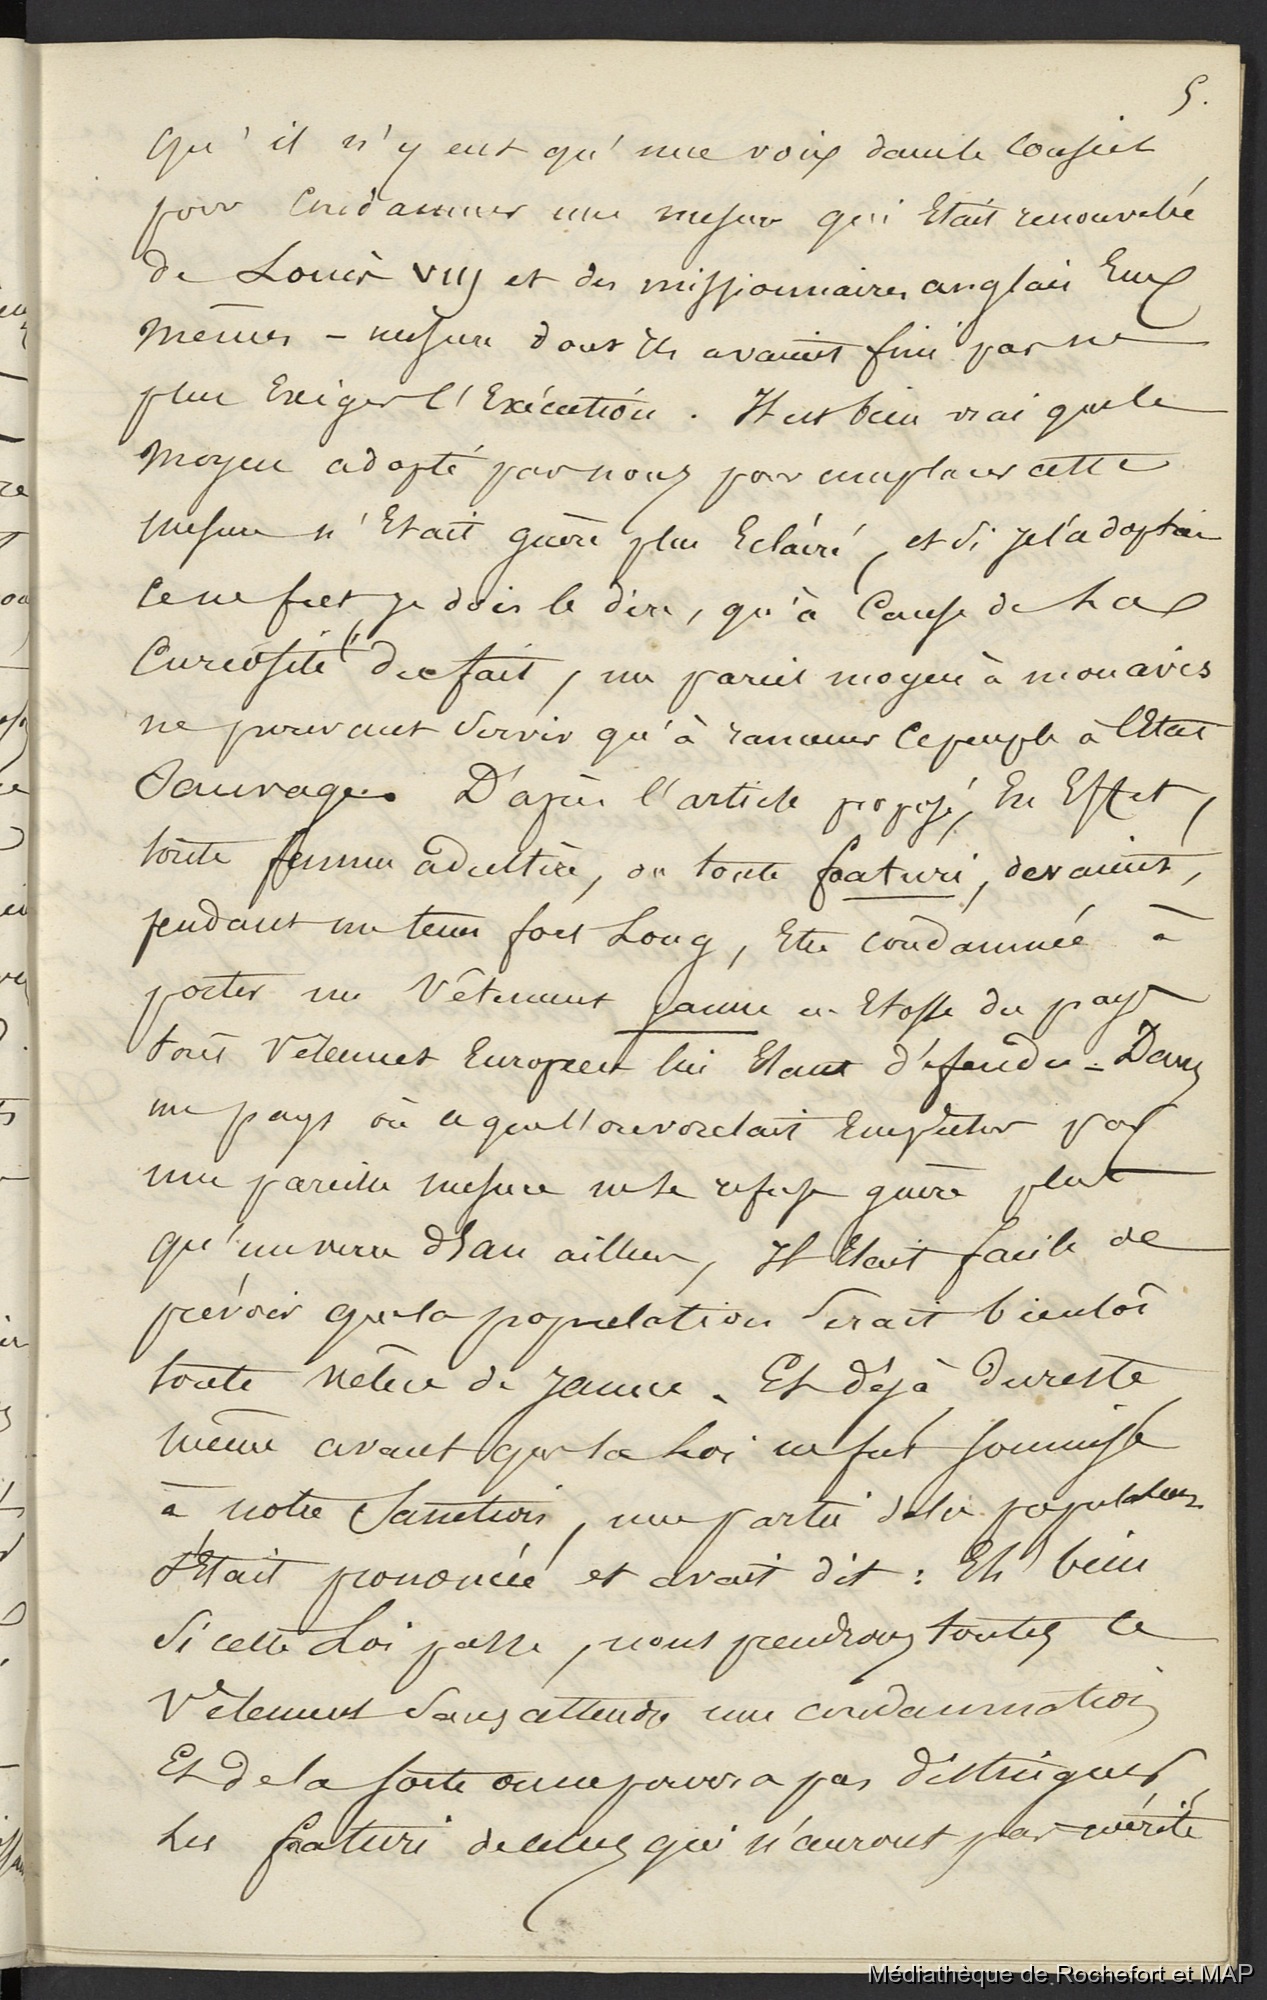 5.
qu'il n'y eut qu'une voix dans le Conseil
pour Condamner une mesure qui Etait renouvelée
de Louis VIII et des missionnaires anglais Eux
mêmes – mesure dont ils avaient fini par ne
plus Exiger l'Exécution. Il est bien vrai que le
moyen adopté par nous pour remplacer cette
mesure n'Etait guère plus Eclairé, et si je l'adoptai
ce ne fut, je dois le dire, qu'à Cause de La
Curiosité du fait, un pareil moyen à mon avis
ne pouvant servir qu'à ramener ce peuple à l'Etat
Sauvage. D'après l'article proposé, En Effet,
toute femme adultère, ou toute faturi, devaient,
pendant un tems fort Long, Etre condamnée à
porter un Vêtement jaune en Etoffe du pays
tout Vêtement Européen lui Etant défendu – Dans
un pays où ce que l'on voulait Empêcher par
une pareille mesure ne se refuse guère plus
qu'un verre d'Eau ailleurs, Il Etait facile de
prévoir que la population serait bientôt
toute vêtue de jaune. Et déjà du reste
même avant que la Loi ne fut soumise
à notre Sanction, une partie de la population
s'Etait prononcée et avait dit : Eh bien
Si cette Loi passe, nous prendrons toutes ce
Vêtement Sans attendre une condamnation
Et de la sorte on ne pourra pas distinguer
Les faturi de celles qui n'auront pas mérité
Médiathèque de Rochefort et MAP